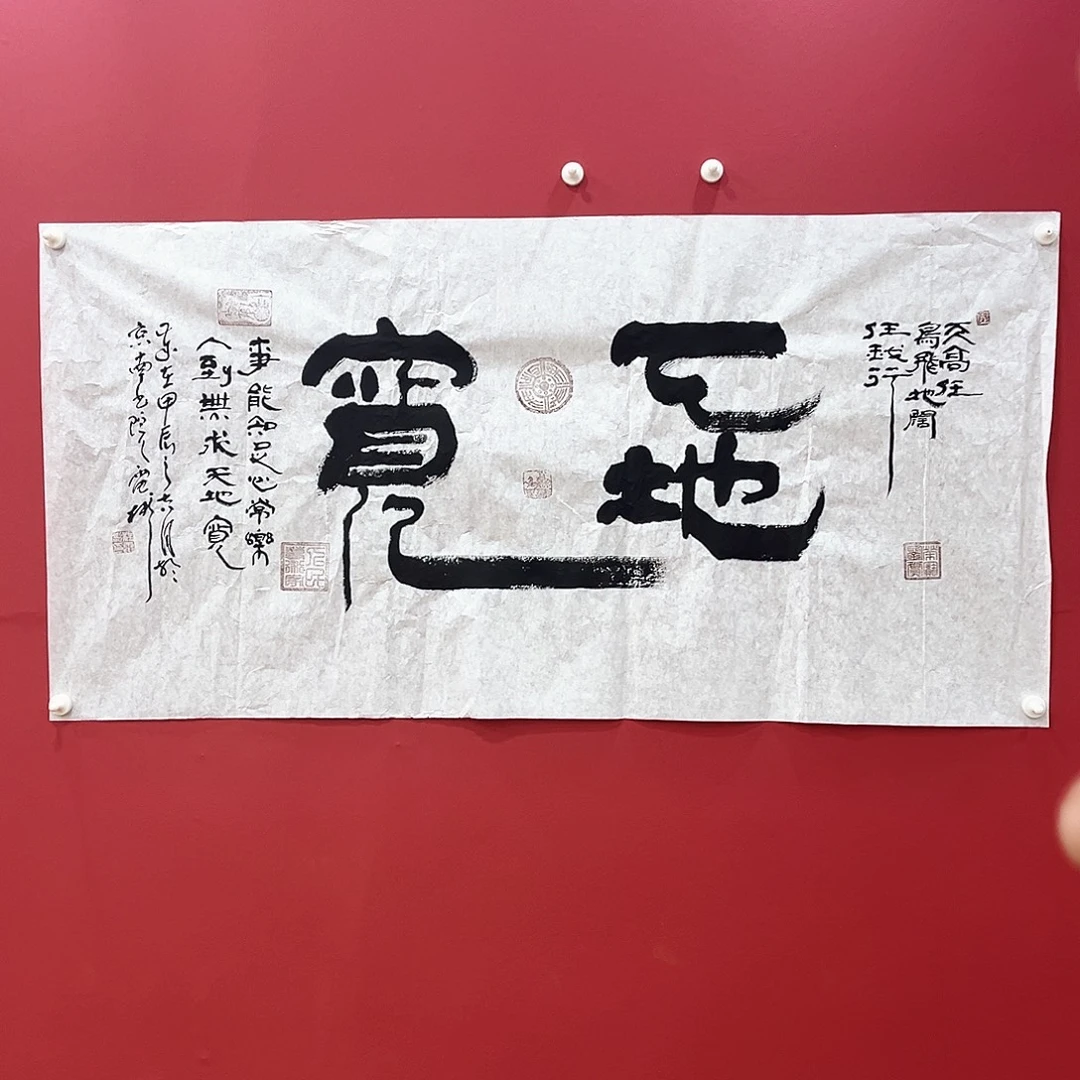 天高任
鳥飛地闊
任我行
天地
寬
事能知足心常樂
人到無求天地寬
歲在甲辰之六月於
京南書院